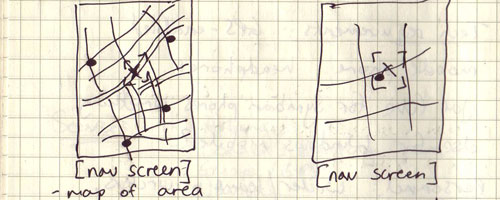 [nav screen]
- map of area
[nav screen]